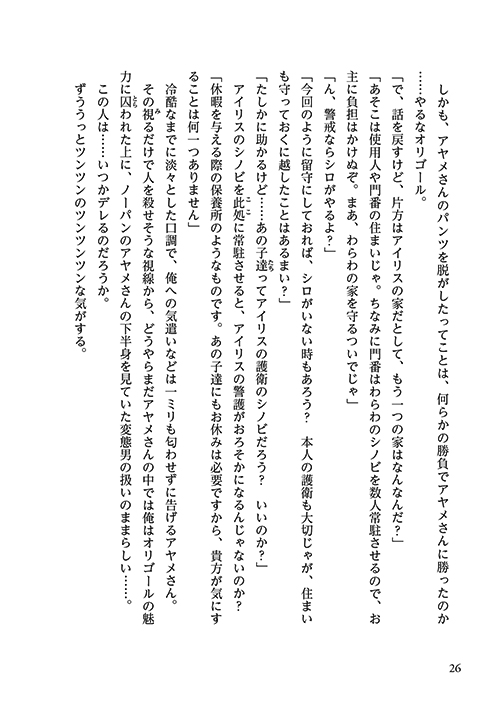 しかも、アヤメさんのパンツを脱がしたってことは、何らかの勝負でアヤメさんに勝ったのか
……やるなオリゴール。
「で、話を戻すけど、片方はアイリスの家だとして、もう一つの家はなんなんだ？」
「あそこは使用人や門番の住まいじゃ。ちなみに門番はわらわのシノビを数人常駐させるので、お
主に負担はかけぬぞ。まあ、わらわの家を守るついでじゃ」
「ん、警戒ならシロがやるよ？」
「今回のように留守にしておれば、シロがいない時もあろう？　本人の護衛も大切じゃが、住まい
も守っておくに越したことはあるまい？」
「たしかに助かるけど……あの子達ってアイリスの護衛のシノビだろう？　いいのか？」
アイリスのシノビを此処に常駐させると、アイリスの警護がおろそかになるんじゃないのか？
「休暇を与える際の保養所のようなものです。あの子達にもお休みは必要ですから、貴方が気にす
ることは何一つありません」
冷酷なまでに淡々とした口調で、俺への気遣いなどは一ミリも匂わせずに告げるアヤメさん。
その視るだけで人を殺せそうな視線から、どうやらまだアヤメさんの中では俺はオリゴールの魅
力に囚われた上に、ノーパンのアヤメさんの下半身を見ていた変態男の扱いのままらしい……。
この人は……いつかデレるのだろうか。
ずううっとツンツンのツンツンツンな気がする。
26